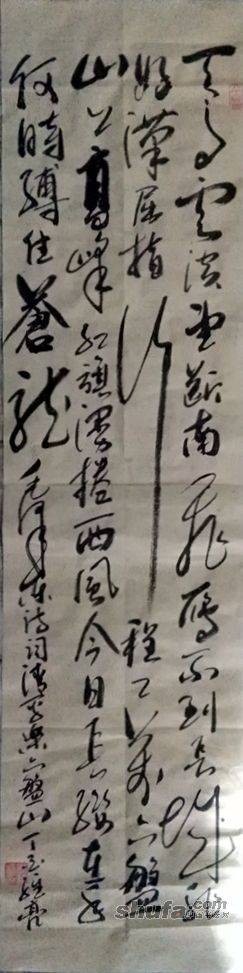 天高雲淡望斷南飛雁不到長城非
好漢屈指行程二萬六盤
山上高峰紅旗漫捲西風今日長纓在手
何時縛住蒼龍 毛澤東詩詞清平樂六盤山 丁酉
shufa